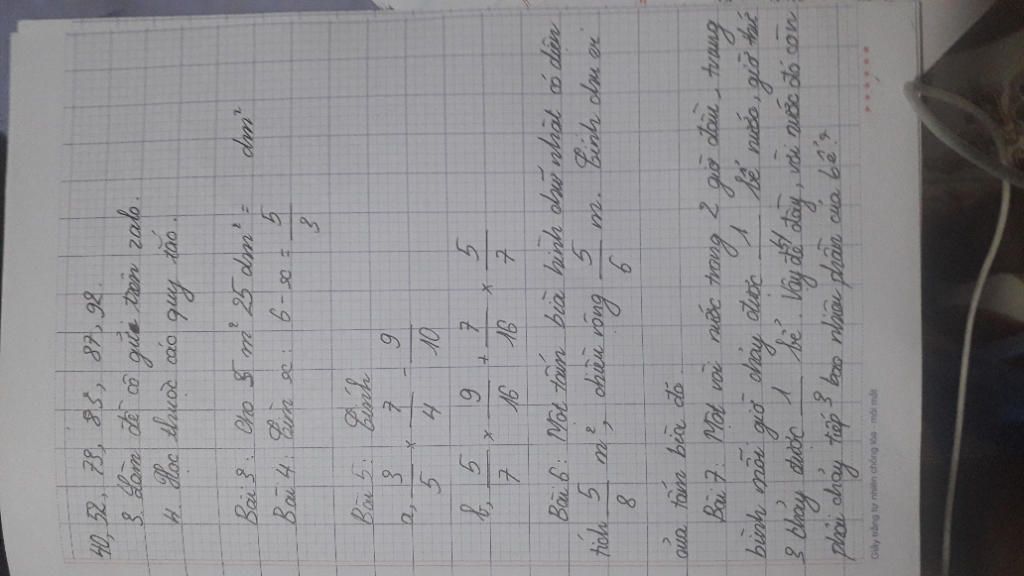 40, 52, 79, 83, 87, 92.
3 Làm đề cô gửi trên zalo.
4 Học thuộc các quy tắc.
Bài 3: Cho 5 m² 25 dm² = dm²
Bài 4: Tìm x: 6 - x = 5/3
Bài 5: Tính
a, 3/5 × 7/4 - 9/10
b, 5/7 × 9/16 + 7/16 × 5/7
Bài 6: Một tấm bìa hình chữ nhật có diện
tích 5/8 m², chiều rộng 5/6 m. Tính chu vi
của tấm bìa đó.
Bài 7: Một vòi nước trong 2 giờ đầu, trung
bình mỗi giờ chảy được 1 bể nước, giờ thứ
3 chảy được 1 bể. Vậy để đầy, vòi nước đó còn
phải chảy tiếp bao nhiêu phần của bể?
Giấy trắng tự nhiên chống lóa - mỏi mắt